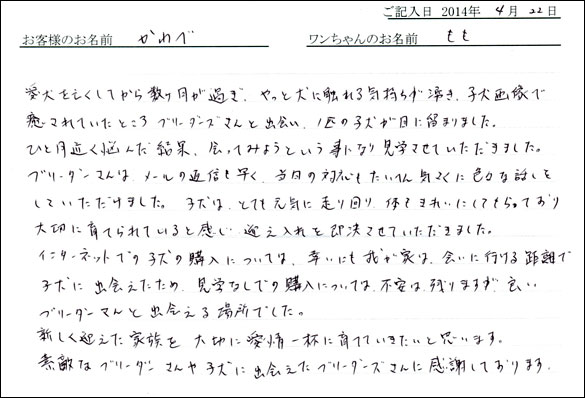 ご記入日 2014年 4月 22日
お客様のお名前 かわべ ワンちゃんのお名前 もも
愛犬を亡くしてから数ヶ月が過ぎ、やっと犬に触れる気持ちが湧き、子犬画像で
癒されていたところ ブリーダーズさんと出会い、1匹の子犬が目に留まりました。
ひと月近く悩んだ結果、会ってみようという事になり見学させていただきました。
ブリーダーさんは、メールの返信も早く、当日の対応もたいへん気さくに色々な話しを
していただけました。子犬は、とても元気に走り回り、体もきれいにしてもらっており
大切に育てられていると感じ 迎え入れを即決させていただきました。
インターネットでの子犬の購入については、幸いにも我が家は、会いに行ける距離で
子犬に出会えたため、見学なしでの購入については、不安は残りますが、良い
ブリーダーさんと出会える場所でした。
新しく迎えた家族を大切に愛情一杯に育てていきたいと思います。
素敵なブリーダーさんや子犬に出会えたブリーダーズさんに感謝しております。